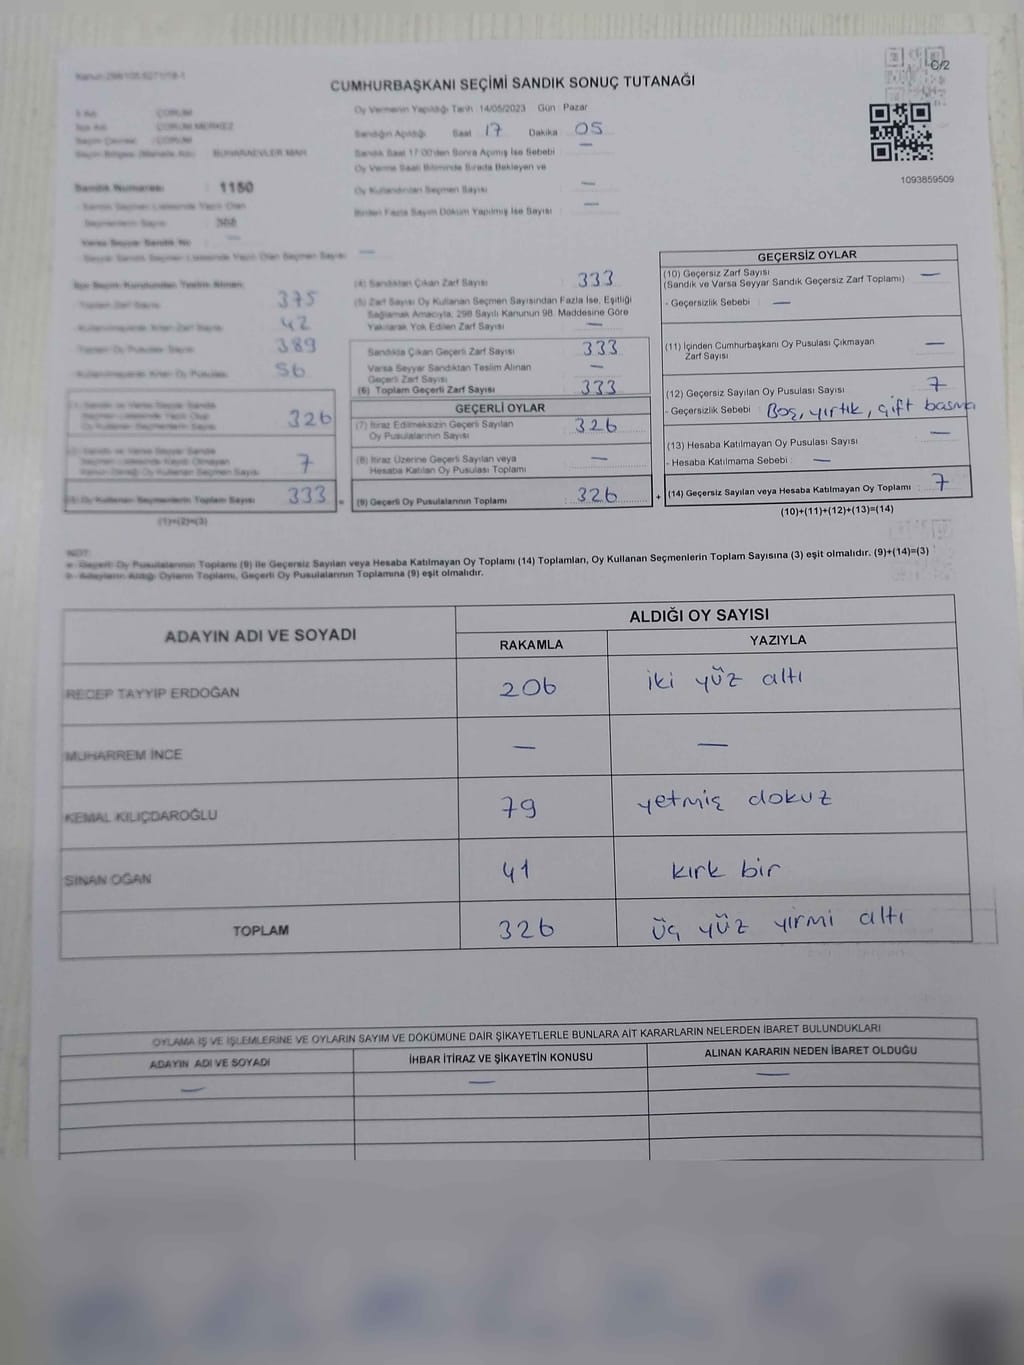 C/2
CUMHURBAŞKANI SEÇİMİ SANDIK SONUÇ TUTANAĞI
Oy Vermenin Yapıldığı Tarih : 14/05/2023 Gün : Pazar
İl Adı : ÇORUM
İlçe Adı : ÇORUM MERKEZ
Seçim Çevresi : ÇORUM
BUHARAEVLER MAH.
Sandığın Açıldığı Saat 17 Dakika 05
Sandık Saat 17:00'den Sonra Açılmış İse Sebebi : —
Oy Verme Saati Bitiminde Sırada Bekleyen ve
Oy Kullandırılan Seçmen Sayısı : —
Birden Fazla Sayım Döküm Yapılmış İse Sayısı : —
1093859509
Sandık Numarası : 1150
- Sandık Seçmen Listesinde Yazılı Olan
Seçmenlerin Sayısı : 368
Varsa Seyyar Sandık No : —
- Seyyar Sandık Seçmen Listesinde Yazılı Olan Seçmen Sayısı : —
İlçe Seçim Kurulundan Teslim Alınan;
- Toplam Zarf Sayısı : 375
- Kullanılmayarak Artan Zarf Sayısı : 42
- Toplam Oy Pusulası Sayısı : 389
- Kullanılmayarak Artan Oy Pusulası : 56
(1) Sandık ve Varsa Seyyar Sandık
Seçmen Listesinde Yazılı Olup
Oy Kullanan Seçmenlerin Sayısı 326
(2) Sandık ve Varsa Seyyar Sandık
Seçmen Listesinde Kaydı Olmayan
Kanun Gereği Oy Kullanan Seçmen Sayısı 7
(3) Oy Kullanan Seçmenlerin Toplam Sayısı 333 =
(1)+(2)=(3)
(4) Sandıktan Çıkan Zarf Sayısı : 333
(5) Zarf Sayısı Oy Kullanan Seçmen Sayısından Fazla İse, Eşitliği
Sağlamak Amacıyla, 298 Sayılı Kanunun 98. Maddesine Göre
Yakılarak Yok Edilen Zarf Sayısı : —
Sandıkta Çıkan Geçerli Zarf Sayısı : 333
Varsa Seyyar Sandıktan Teslim Alınan
Geçerli Zarf Sayısı : —
(6) Toplam Geçerli Zarf Sayısı : 333
GEÇERLİ OYLAR
(7) İtiraz Edilmeksizin Geçerli Sayılan
Oy Pusulalarının Sayısı : 326
(8) İtiraz Üzerine Geçerli Sayılan veya
Hesaba Katılan Oy Pusulası Toplamı : —
(9) Geçerli Oy Pusulalarının Toplamı : 326 +
GEÇERSİZ OYLAR
(10) Geçersiz Zarf Sayısı
(Sandık ve Varsa Seyyar Sandık Geçersiz Zarf Toplamı) : —
- Geçersizlik Sebebi : —
(11) İçinden Cumhurbaşkanı Oy Pusulası Çıkmayan
Zarf Sayısı : —
(12) Geçersiz Sayılan Oy Pusulası Sayısı : 7
- Geçersizlik Sebebi : Boş, yırtık, çift basma
(13) Hesaba Katılmayan Oy Pusulası Sayısı : —
- Hesaba Katılmama Sebebi : —
(14) Geçersiz Sayılan veya Hesaba Katılmayan Oy Toplamı : 7
(10)+(11)+(12)+(13)=(14)
NOT:
a- Geçerli Oy Pusulası Toplamı (9) ile Geçersiz Sayılan veya Hesaba Katılmayan Oy Toplamı (14) Toplamları, Oy Kullanan Seçmenlerin Toplam Sayısına (3) eşit olmalıdır. (9)+(14)=(3)
b- Adayların Aldığı Oyların Toplamı, Geçerli Oy Pusulalarının Toplamına (9) eşit olmalıdır.
ADAYIN ADI VE SOYADI ALDIĞI OY SAYISI
RAKAMLA YAZIYLA
RECEP TAYYİP ERDOĞAN 206 iki yüz altı
MUHARREM İNCE — —
KEMAL KILIÇDAROĞLU 79 yetmiş dokuz
SİNAN OĞAN 41 kırk bir
TOPLAM 326 üç yüz yirmi altı
OYLAMA İŞ VE İŞLEMLERİNE VE OYLARIN SAYIM VE DÖKÜMÜNE DAİR ŞİKAYETLERLE BUNLARA AİT KARARLARIN NELERDEN İBARET BULUNDUKLARI
ADAYIN ADI VE SOYADI İHBAR İTİRAZ VE ŞİKAYETİN KONUSU ALINAN KARARIN NEDEN İBARET OLDUĞU
— — —